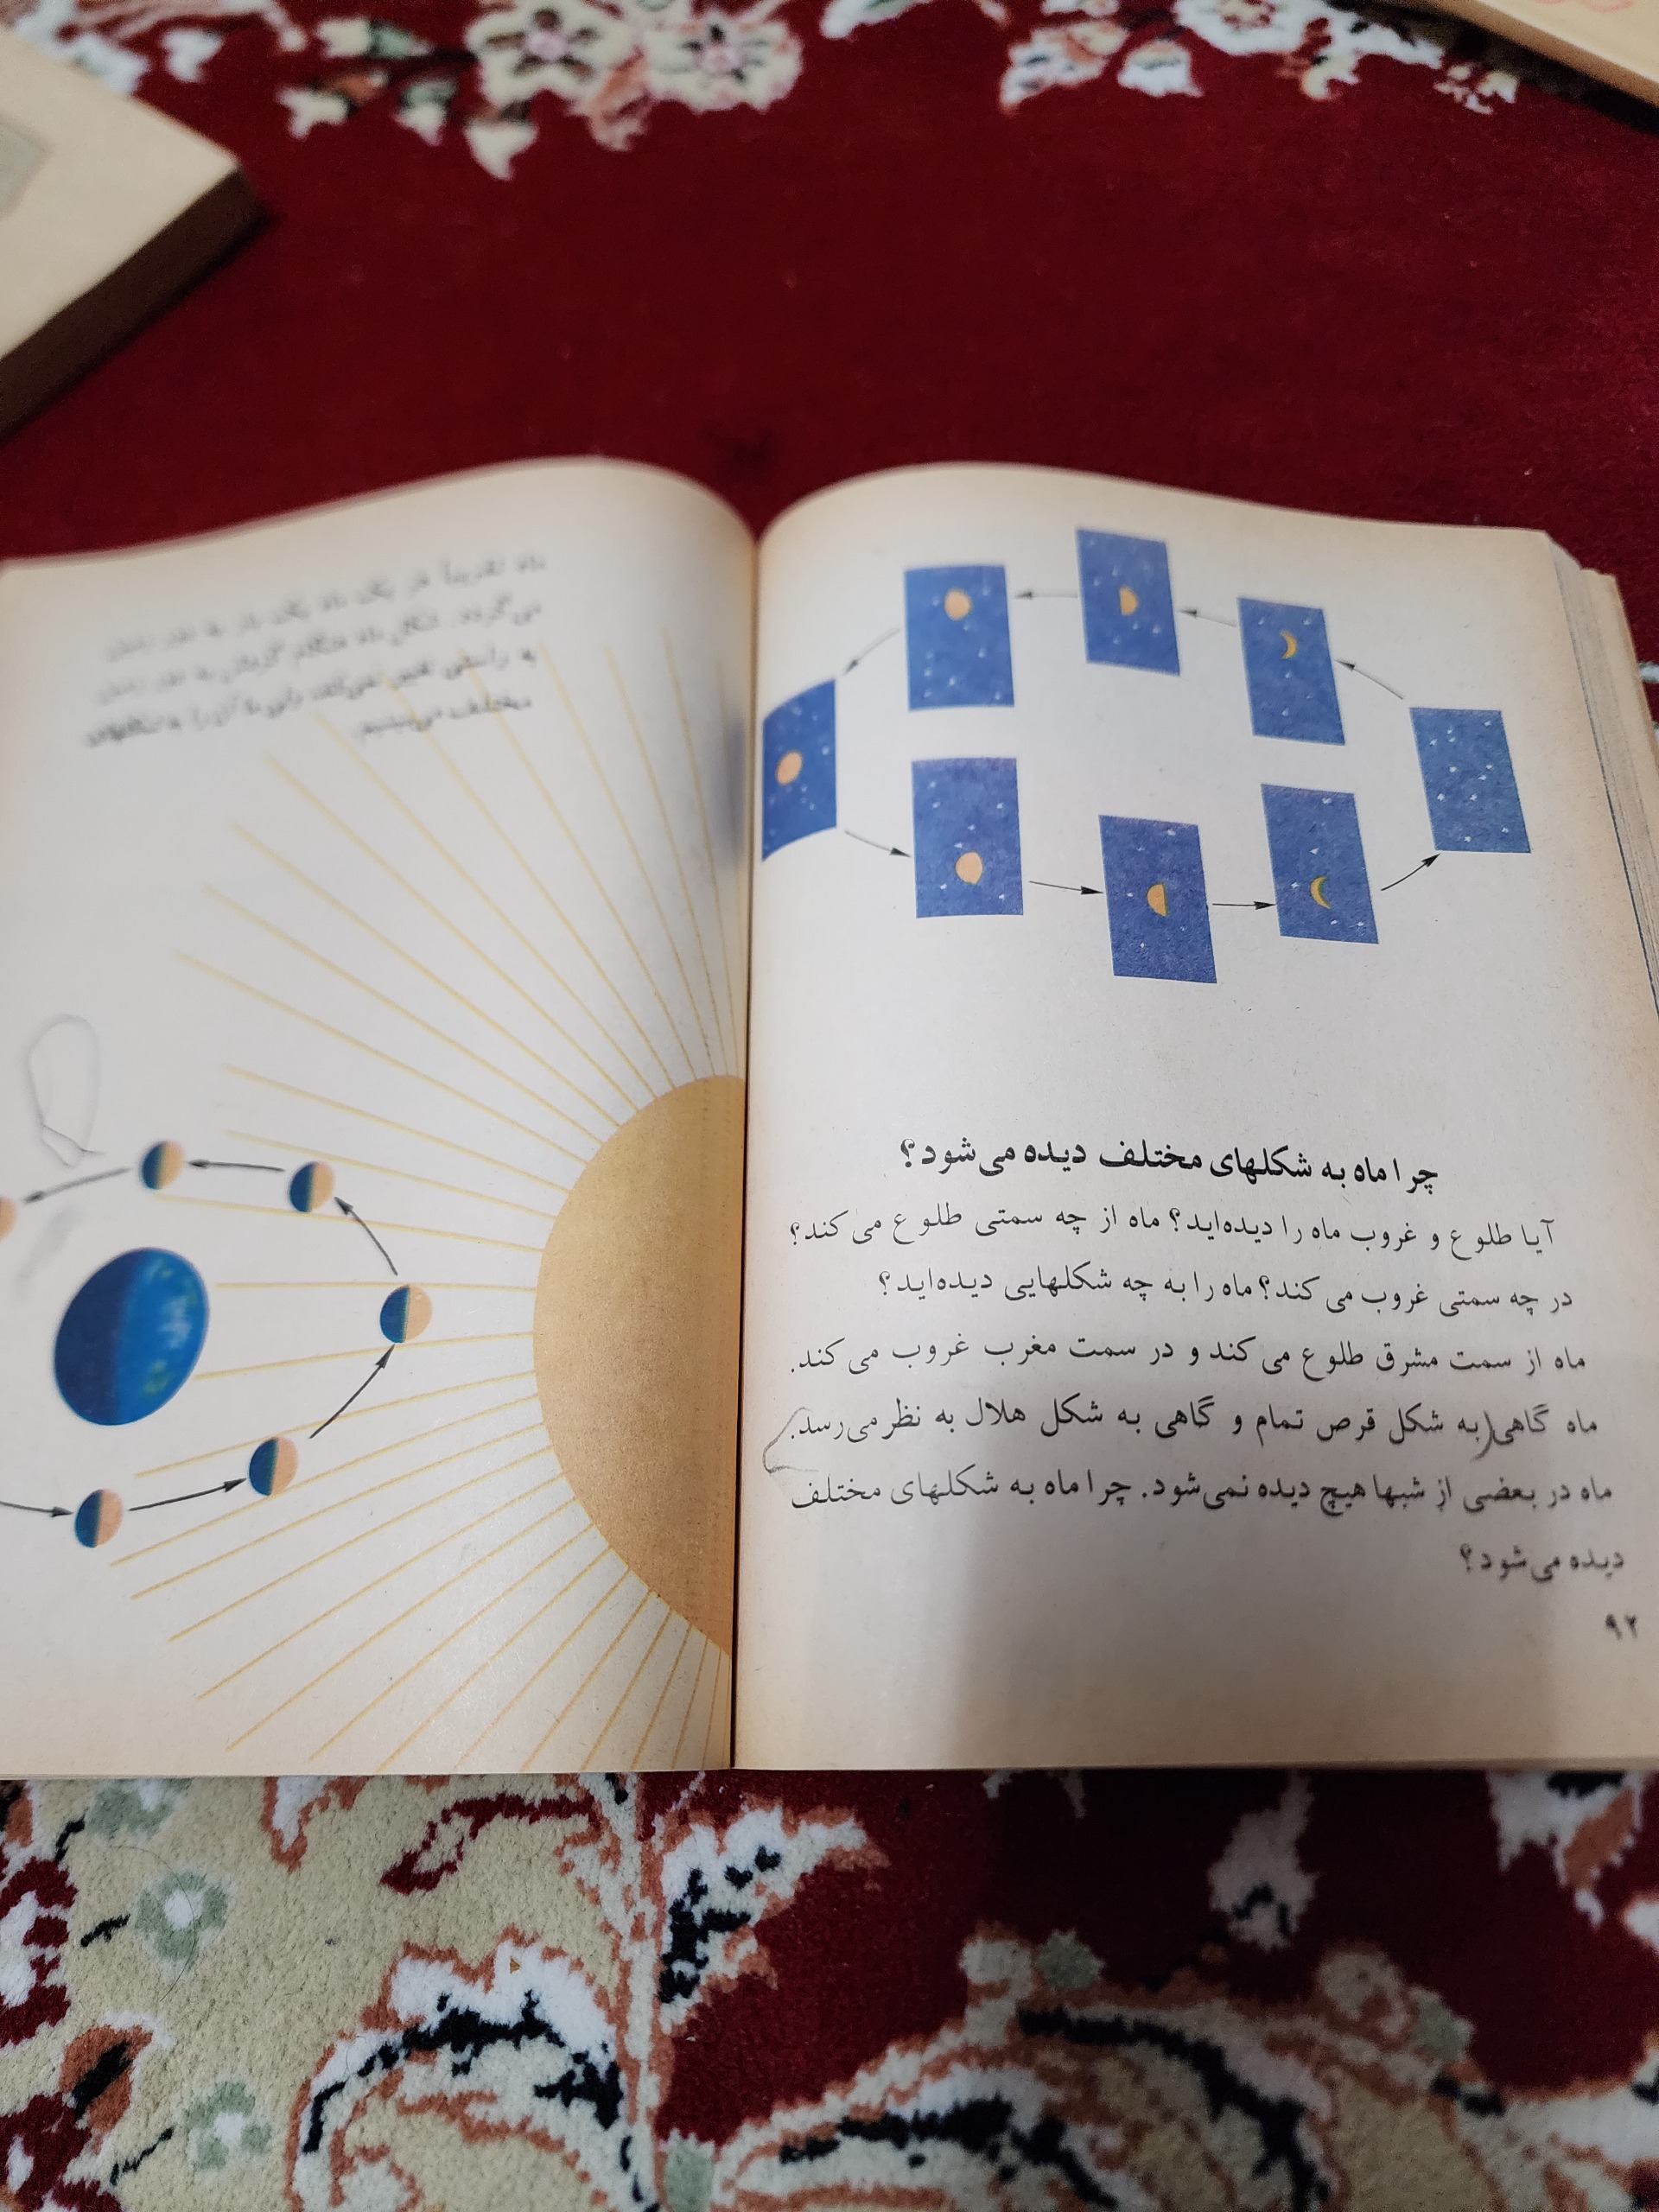 چرا ماه به شکلهای مختلف دیده می‌شود؟
آیا طلوع و غروب ماه را دیده‌اید؟ ماه از چه سمتی طلوع می‌کند؟
در چه سمتی غروب می‌کند؟ ماه را به چه شکلهایی دیده‌اید؟
ماه از سمت مشرق طلوع می‌کند و در سمت مغرب غروب می‌کند.
ماه گاهی (به شکل قرص تمام و گاهی به شکل هلال به نظر می‌رسد.
ماه در بعضی از شبها هیچ دیده نمی‌شود. چرا ماه به شکلهای مختلف
دیده می‌شود؟
۹۲
ماه تقریباً در یک ماه یک بار به دور زمین
می‌گردد. شکل ماه هنگام گردش به دور زمین
به راستی تغییر نمی‌کند، ولی ما آن را به شکلهای
مختلف می‌بینیم.